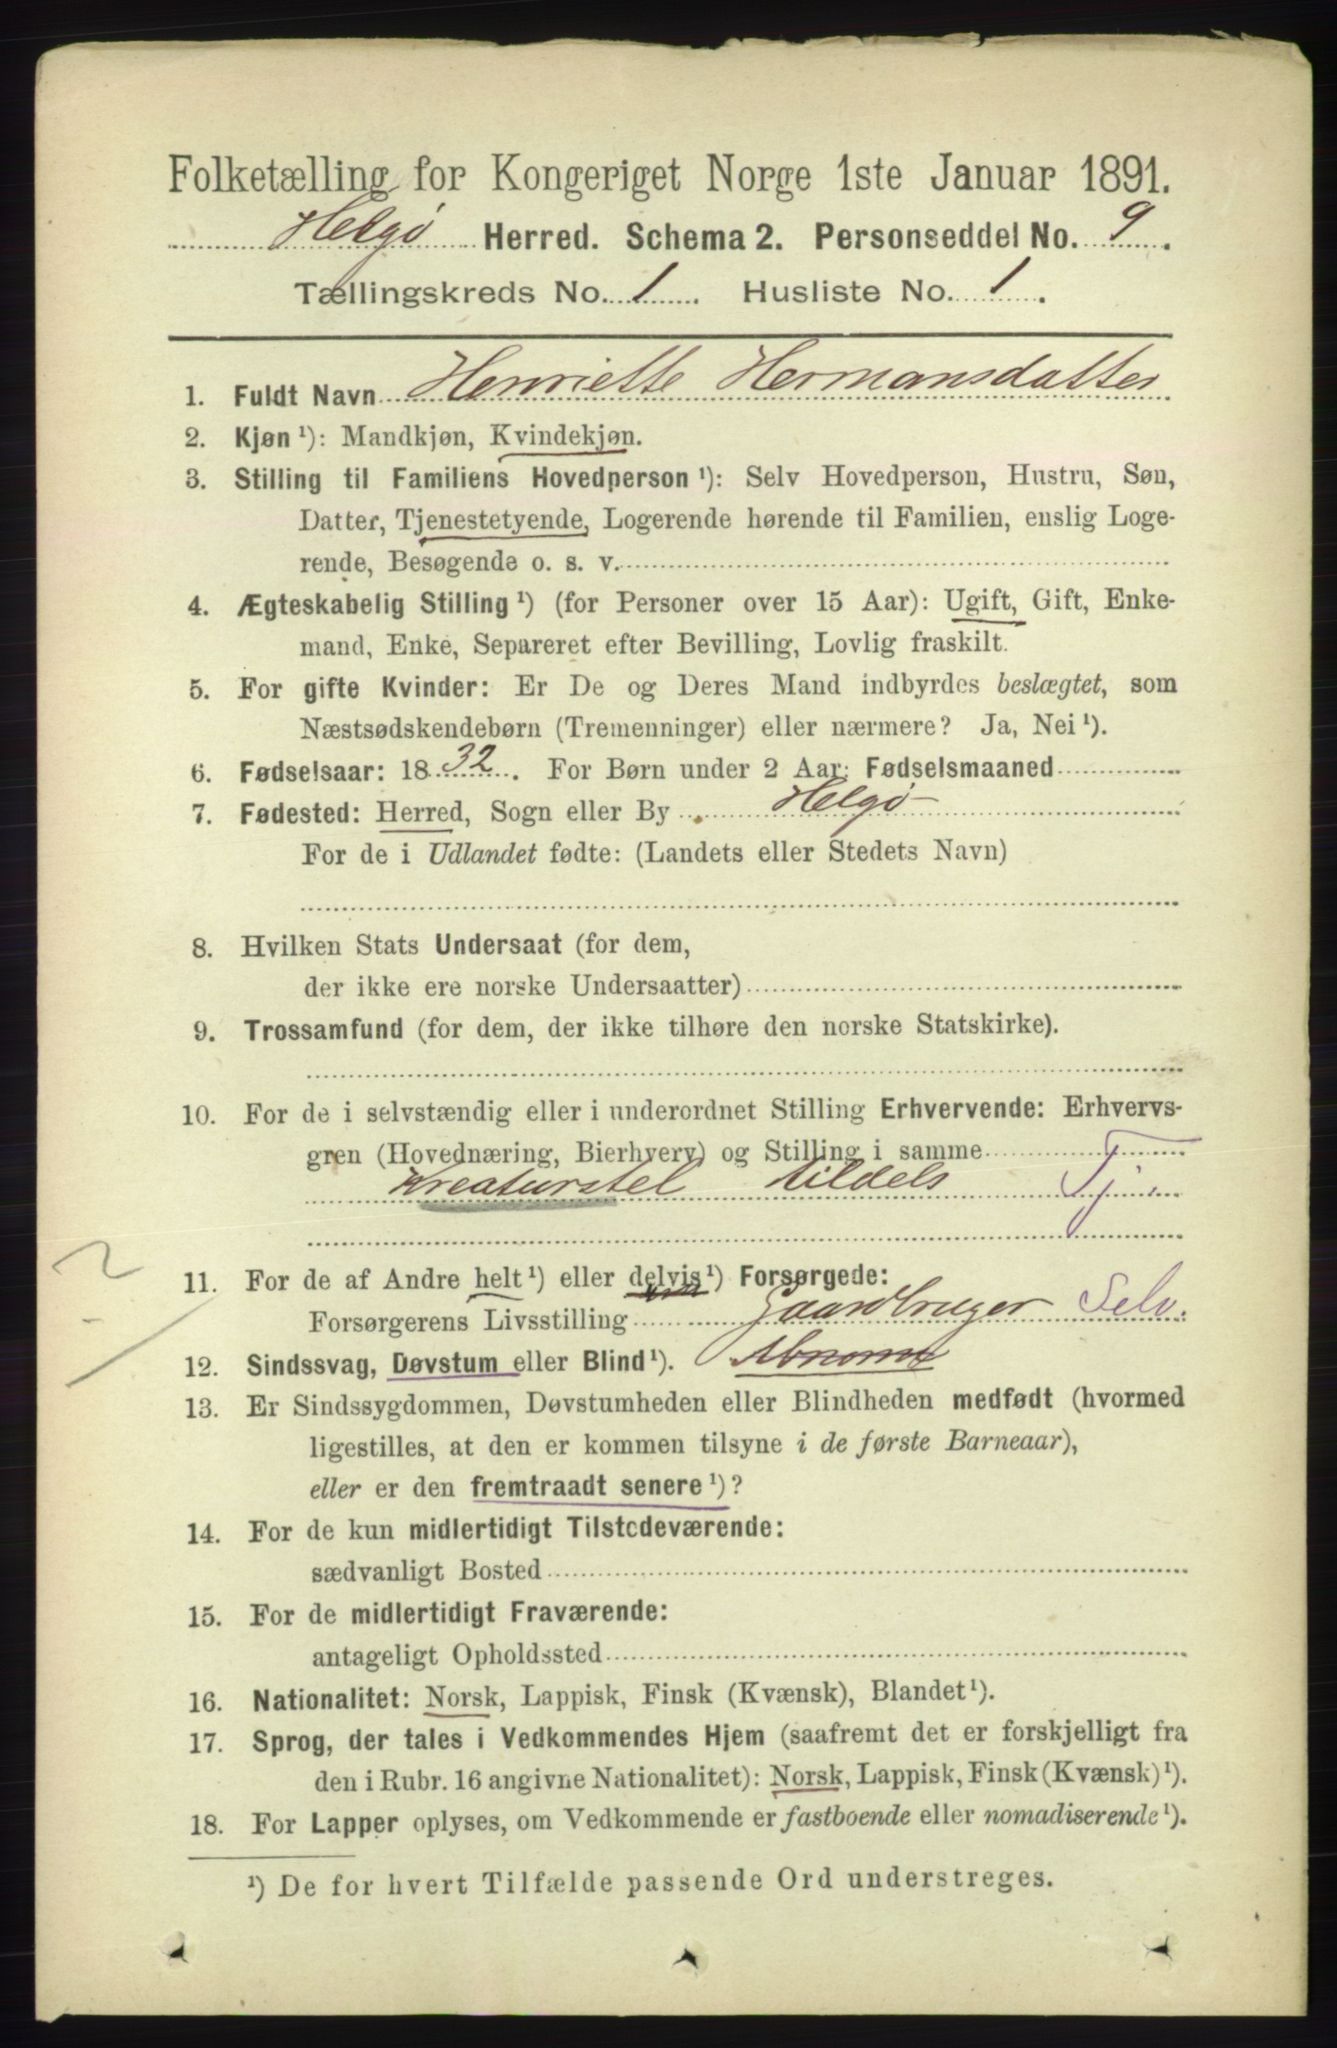 Folketælling for Kongeriget Norge 1ste Januar 1891.
Helgø Herred. Schema 2. Personseddel No. 9.
Tællingskreds No. 1. Husliste No. 1.
1. Fuldt Navn Henriette Hermansdatter
2. Kjøn ¹): Mandkjøn, Kvindekjøn.
3. Stilling til Familiens Hovedperson ¹): Selv Hovedperson, Hustru, Søn,
Datter, Tjenestetyende, Logerende hørende til Familien, enslig Loge-
rende, Besøgende o. s. v.
4. Ægteskabelig Stilling ¹) (for Personer over 15 Aar): Ugift, Gift, Enke-
mand, Enke, Separeret efter Bevilling, Lovlig fraskilt.
5. For gifte Kvinder: Er De og Deres Mand indbyrdes beslægtet, som
Næstsødskendebørn (Tremenninger) eller nærmere? Ja, Nei ¹).
6. Fødselsaar: 1832. For Børn under 2 Aar: Fødselsmaaned
7. Fødested: Herred, Sogn eller By Helgø
For de i Udlandet fødte: (Landets eller Stedets Navn)
8. Hvilken Stats Undersaat (for dem,
der ikke ere norske Undersaatter)
9. Trossamfund (for dem, der ikke tilhøre den norske Statskirke).
10. For de i selvstændig eller i underordnet Stilling Erhvervende: Erhvervs-
gren (Hovednæring, Bierhverv) og Stilling i samme
Kreaturstel tildels Tj.
2
11. For de af Andre helt ¹) eller delvis ¹) Forsørgede:
Forsørgerens Livsstilling Gaardbruger Selv.
12. Sindssvag, Døvstum eller Blind ¹).
13. Er Sindssygdommen, Døvstumheden eller Blindheden medfødt (hvormed
ligestilles, at den er kommen tilsyne i de første Barneaar),
eller er den fremtraadt senere ¹)?
14. For de kun midlertidigt Tilstedeværende:
sædvanligt Bosted
15. For de midlertidigt Fraværende:
antageligt Opholdssted
16. Nationalitet: Norsk, Lappisk, Finsk (Kvænsk), Blandet ¹).
17. Sprog, der tales i Vedkommendes Hjem (saafremt det er forskjelligt fra
den i Rubr. 16 angivne Nationalitet): Norsk, Lappisk, Finsk (Kvænsk) ¹).
18. For Lapper oplyses, om Vedkommende er fastboende eller nomadiserende ¹).
¹) De for hvert Tilfælde passende Ord understreges.